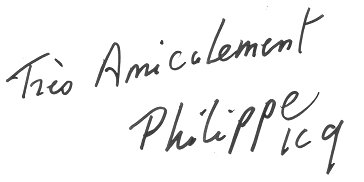 Très Amicalement
Philippe